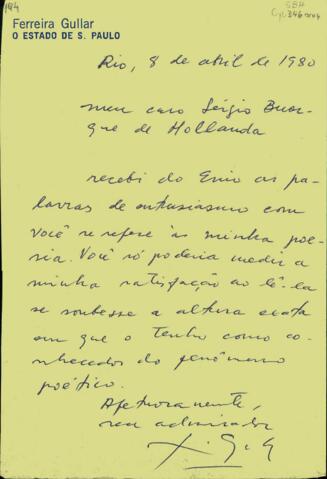 194
SBH
Ferreira Gullar
O ESTADO DE S. PAULO
Rio, 8 de abril de 1980
meu caro Sérgio Buar-
que de Hollanda
recebi do Enio as pa-
lavras de entusiasmo com
você se refere às minha poe-
sia. Você só poderia medir a
minha satisfação ao lê-la
se soubesse a altura exata
em que o tenho como co-
nhecedor do fenômeno
poético.
Afetuosamente,
seu admirador